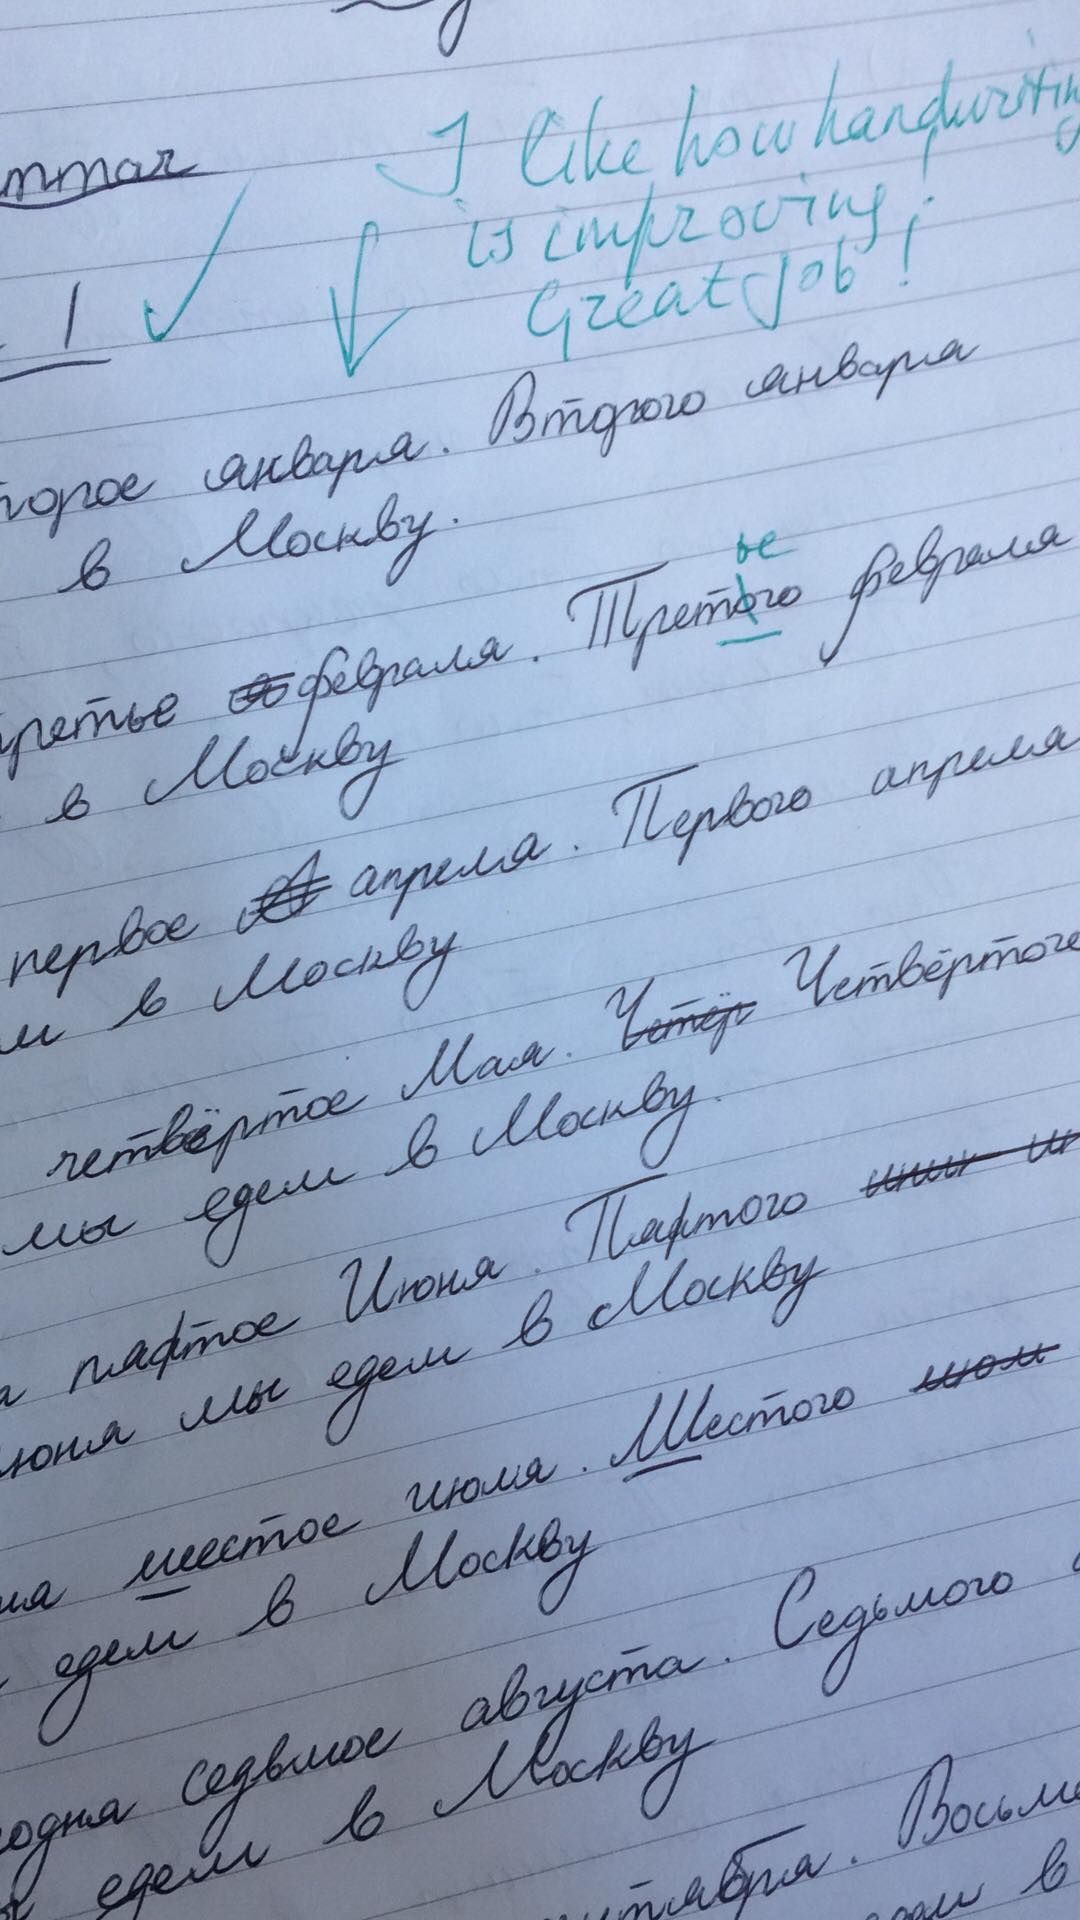 I like how handwriting
is improving!
Great job!
1
января. Второго января
в Москву.
ье
третье февраля. Третого февраля
в Москву
первое апреля. Первого апреля
в Москву
четвёртое Мая. Четвёртого
мы едем в Москву.
пятое Июня. Пятого
июня мы едем в Москву
шестое июля. Шестого
едем в Москву
седьмое августа. Седьмого
едем в Москву
в